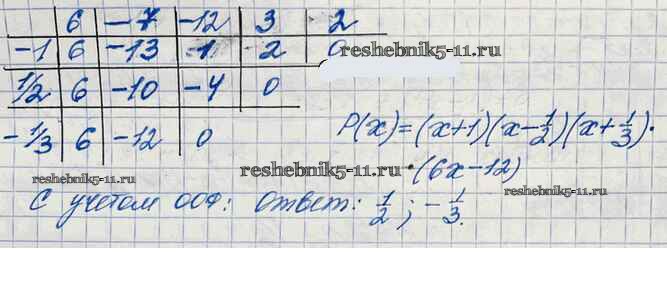 6 -7 -12 3 2
-1 6 -13 1 2 0
reshebnik5-11.ru
1/2 6 -10 -4 0
-1/3 6 -12 0
P(x)=(x+1)(x-1/2)(x+1/3)·
·(6x-12)
reshebnik5-11.ru
reshebnik5-11.ru
reshebnik5-11.ru
С учетом ООФ: Ответ: 1/2; -1/3.